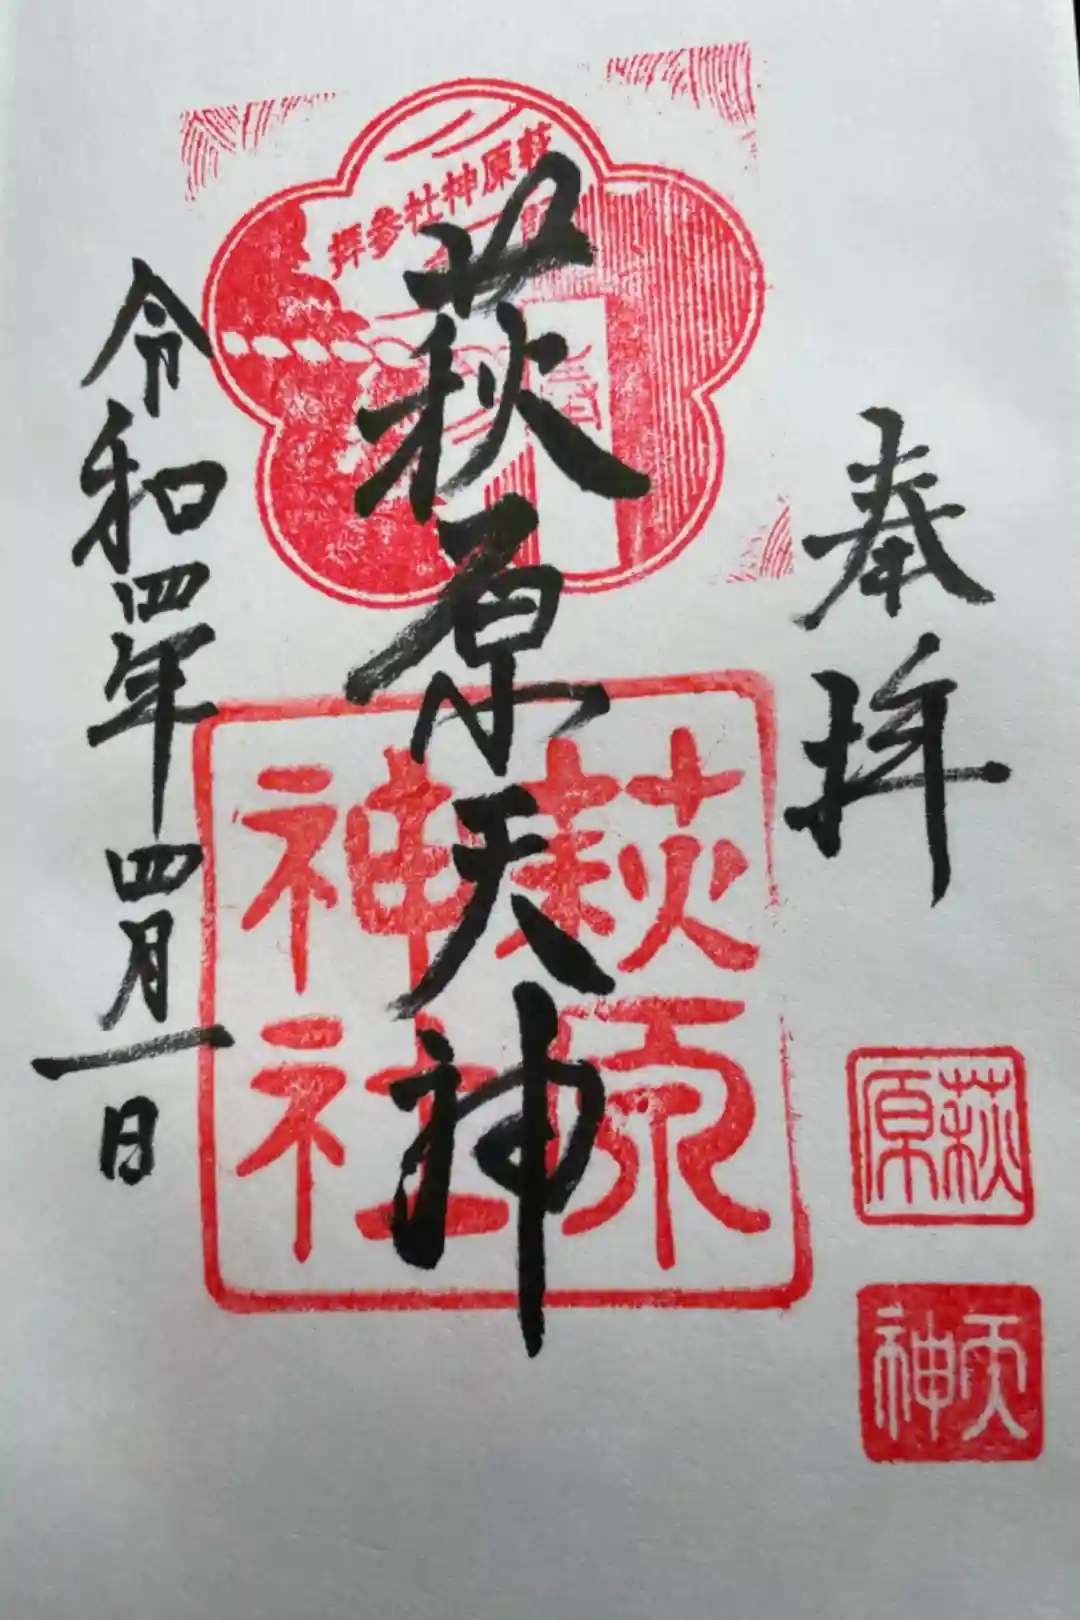 奉拝
萩原天神
令和四年四月一日
萩原神社参拝
萩原
神社
萩原
天神